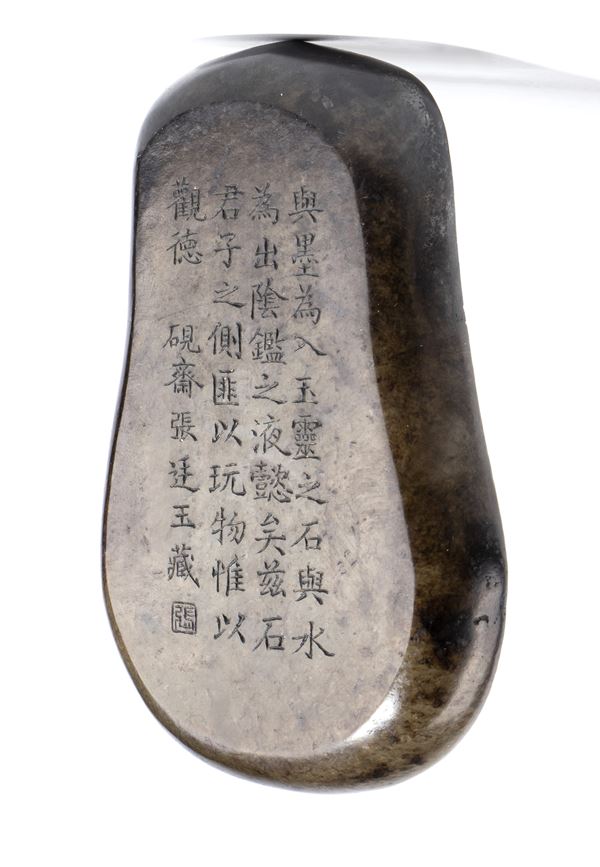 與墨為入玉靈之石與水
為出陰鑑之液懿矣茲石
君子之側匪以玩物惟以
觀德 硯齋張廷玉藏
張